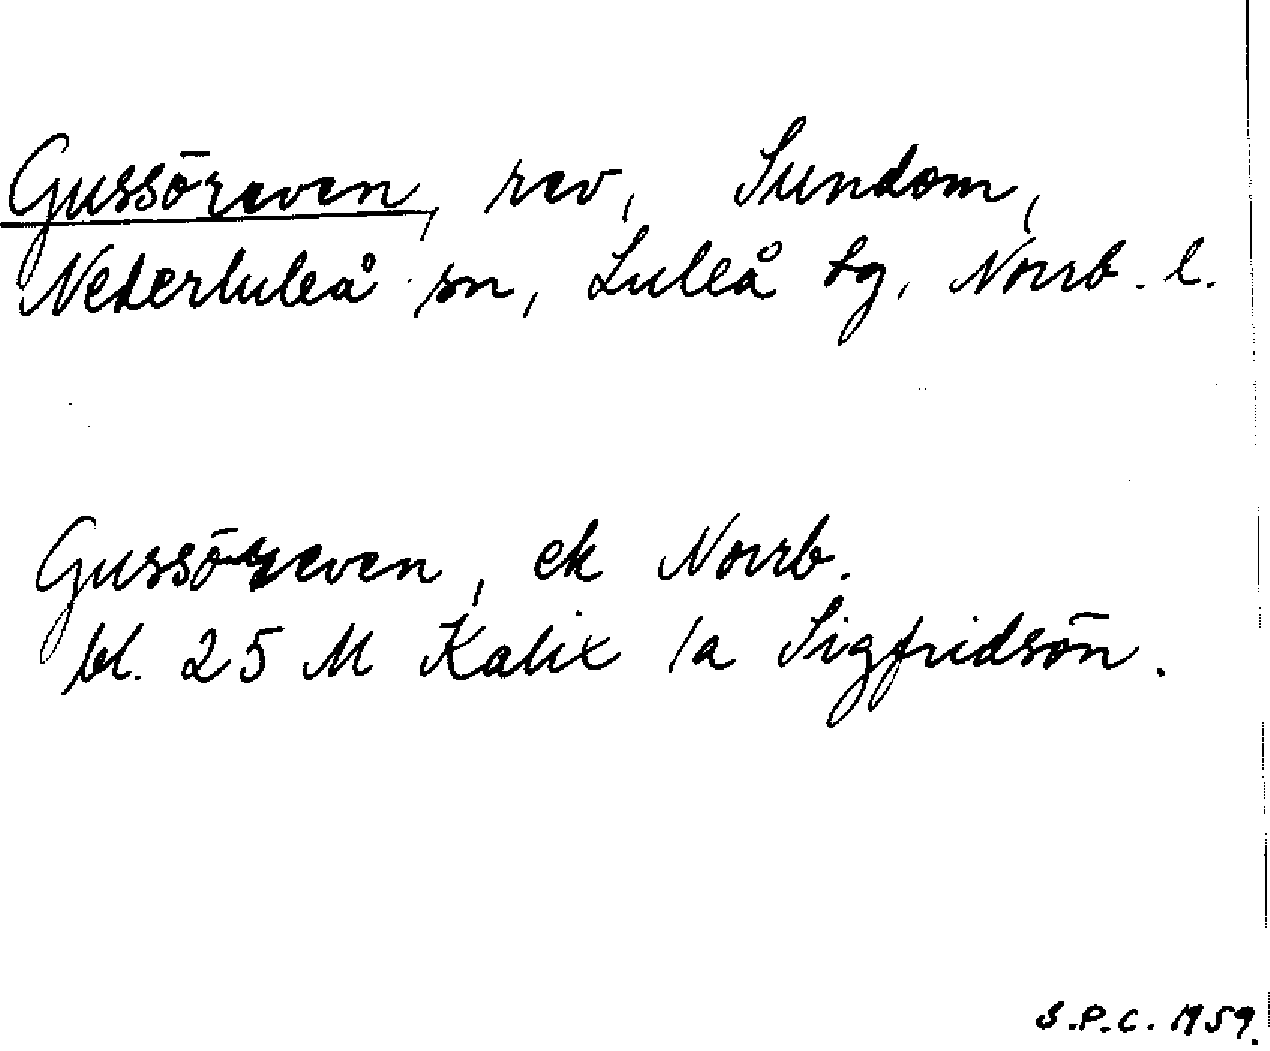 Gussöreven, rev, Sundom,
Nederluleå sn, Luleå tg, Norrb. l.
Gussöreven, ek Norrb.
bl. 25 M Kalix /a Sigfridsön.
S.P.C. 1959.